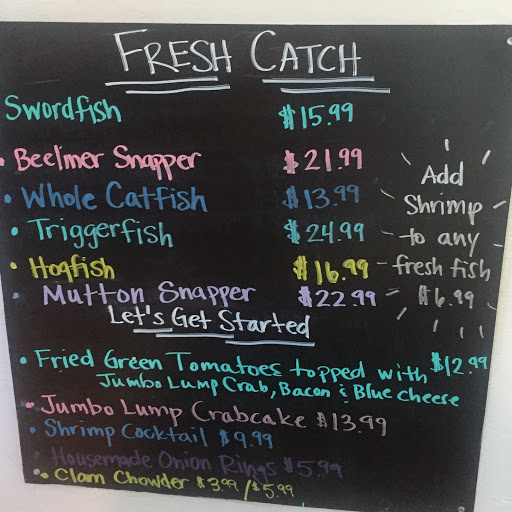 FRESH CATCH
Swordfish $15.99
• Beelmer Snapper $21.99
• Whole Catfish $13.99
• Triggerfish $24.99
• Hogfish $16.99
• Mutton Snapper $22.99
Add
Shrimp
to any
fresh fish
$6.99
Let's Get Started
• Fried Green Tomatoes topped with $12.99
Jumbo Lump Crab, Bacon & Blue Cheese
• Jumbo Lump Crabcake $13.99
• Shrimp Cocktail $9.99
• Housemade Onion Rings $5.99
• Clam Chowder $3.99/$5.99